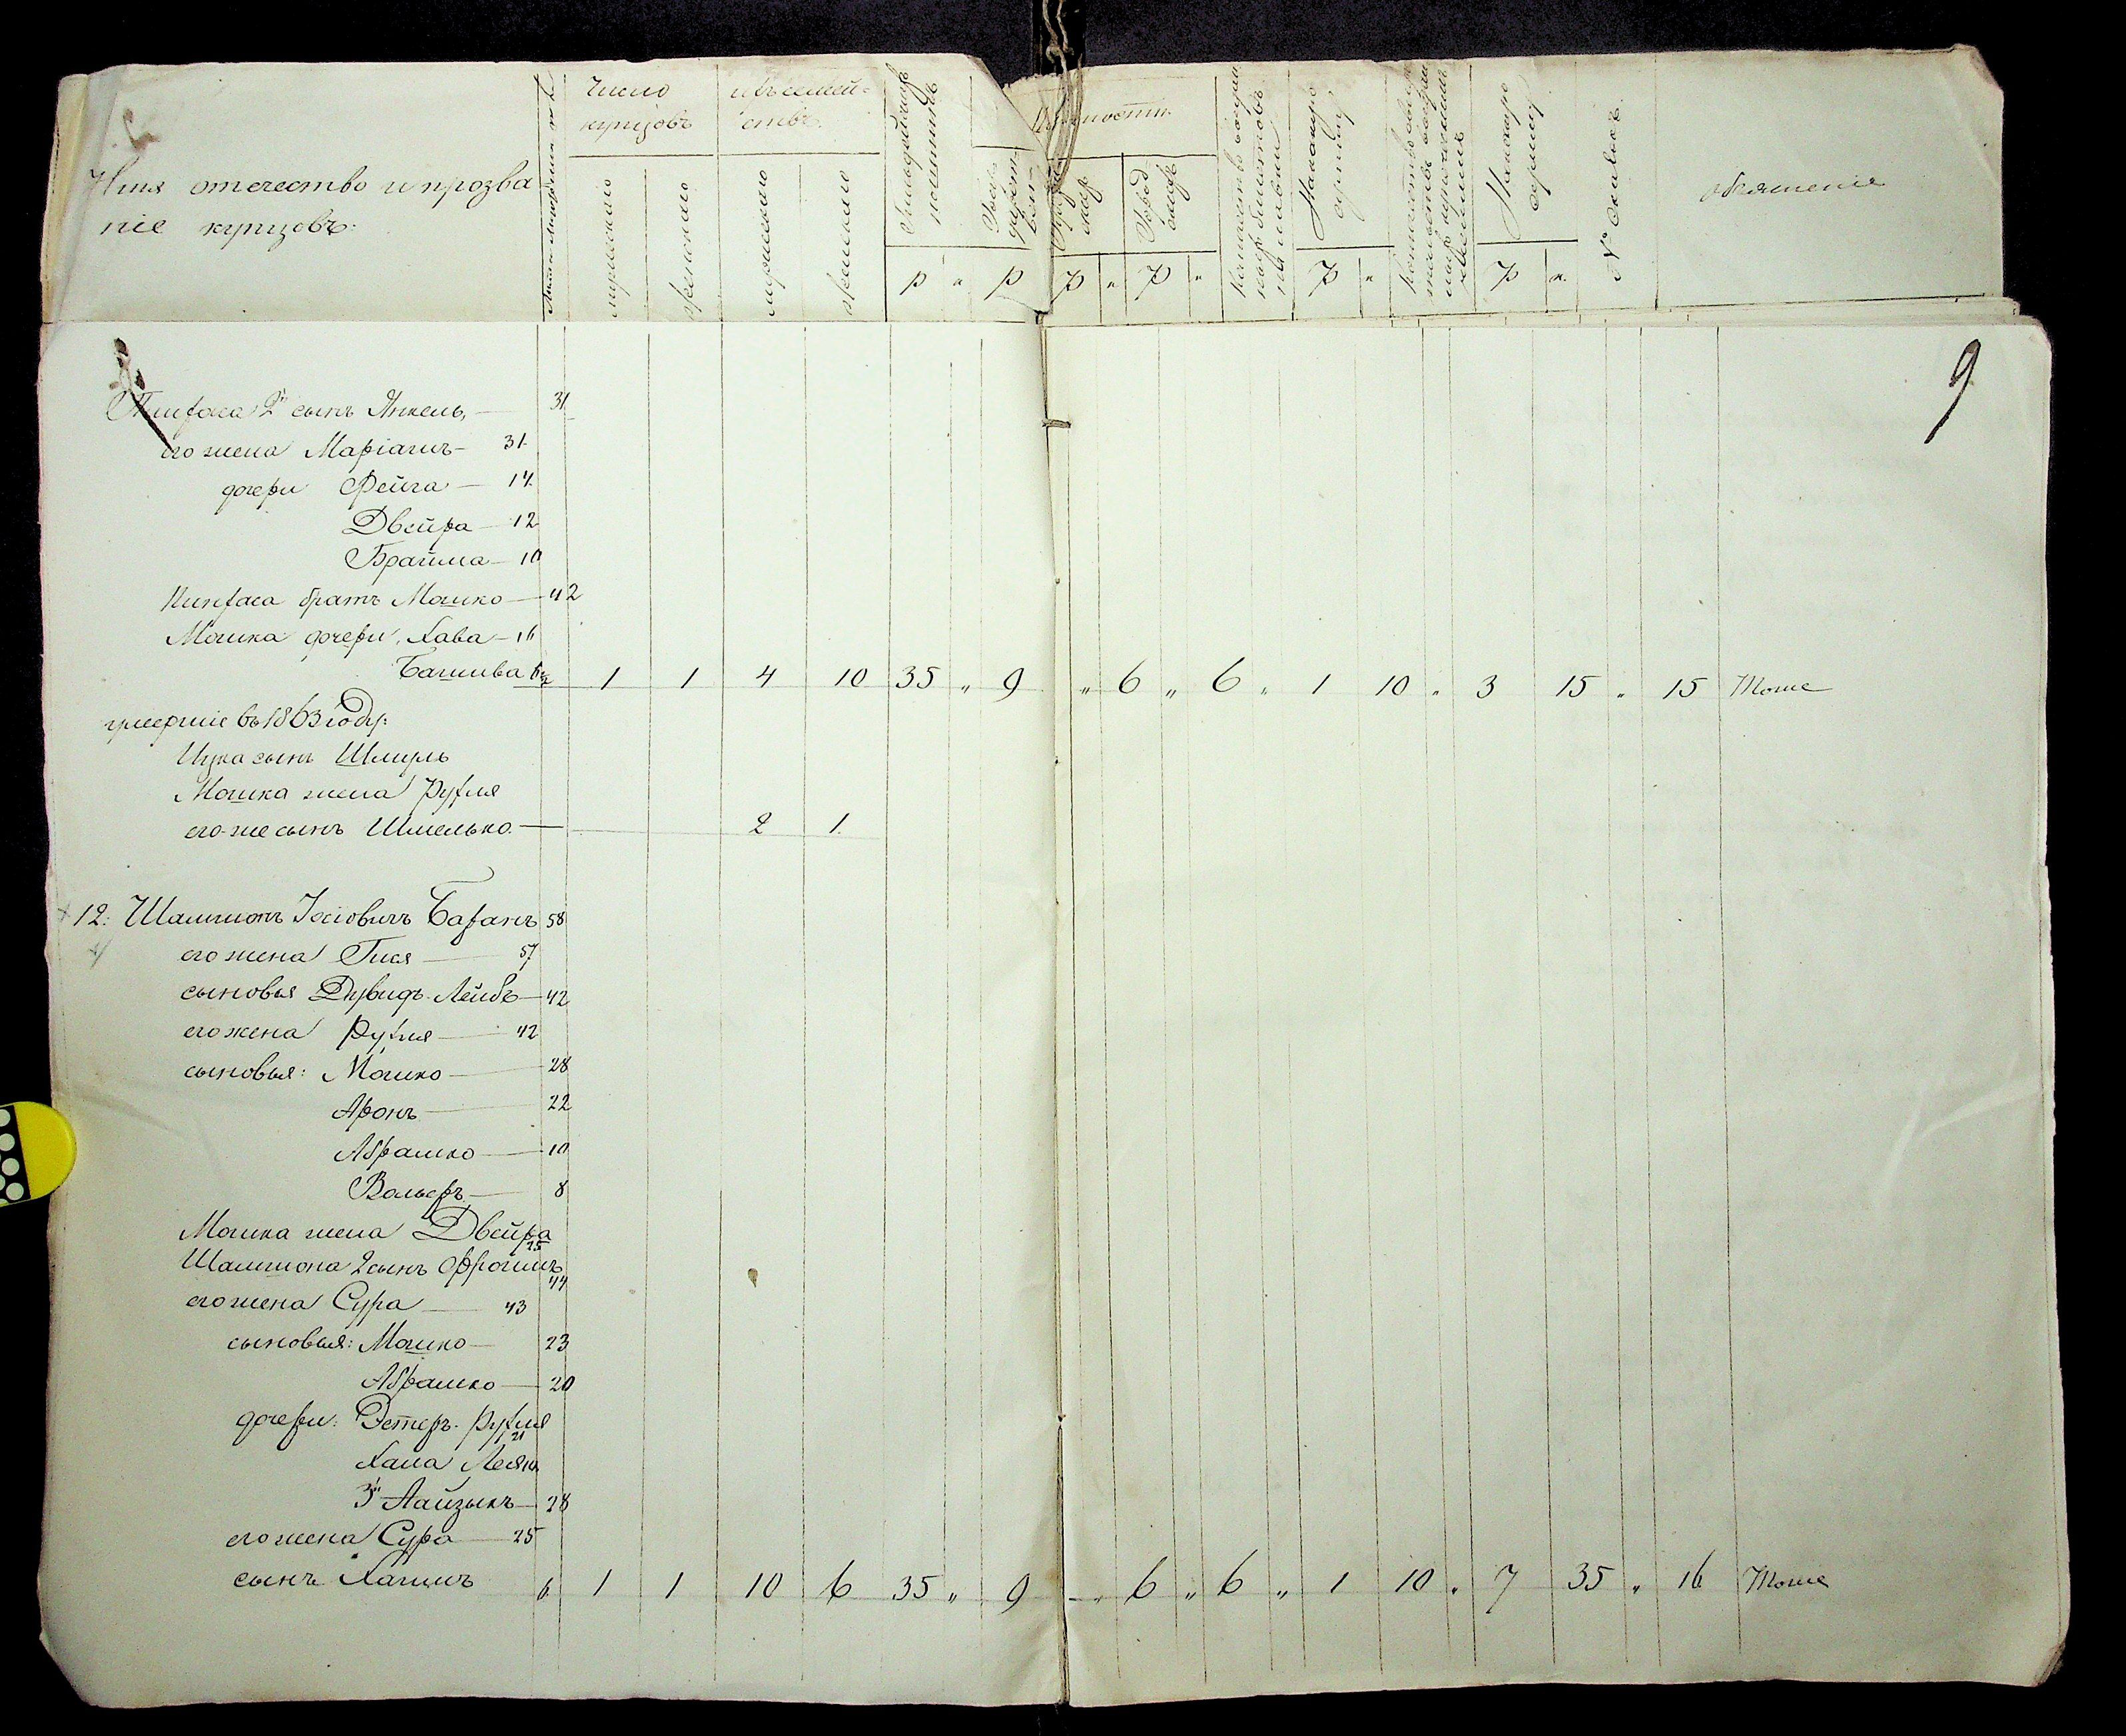 Имя отечество и прозва
ніе купцовъ:
Число купцовъ
мужеского
женского
ихъ семей-
ствъ.
мужеского
женского
Гильдейскихъ пошлинъ
р "
р
р " р "
р "
р к.
№ описковъ
объясненіе
9
Пинхаса 2й сынъ Янкель, — 31
его жена Маріамъ — 31
дочери Фейга — 14
Двейра — 12
Брайна — 10
Пинхаса братъ Мошко — 42
Мошка дочери, Хава — 16
Башива 1 1 4 10 35 „ 9 „ 6 „ 6 „ 1 10 „ 3 15 „ 15 Тоже
умершіе въ 1863 году:
Ицка сынъ Шмуль
Мошка жена Рухля
его-же сынъ Шмелько — 2 1
12: Шамшонъ Іосіовичъ Баранъ 58
его жена Гися — 57
сыновья Дувидъ-Лейбъ — 42
его жена Рухля — 42
сыновья: Мошко — 28
Аронъ — 22
Абрашко — 10
Вольфъ — 8
Мошка жена Двейра 25
Шамшона 2 сынъ Фроимъ 44
его жена Сура — 43
сыновья: Мошко — 23
Абрашко — 20
дочери: Эстеръ-Рухля 21
Хана Леся
3й Айзыкъ — 28
его жена Сура — 25
сынъ Хаимъ 6 1 1 10 6 35 „ 9 „ 6 „ 6 „ 1 10 „ 7 35 „ 16 Тоже